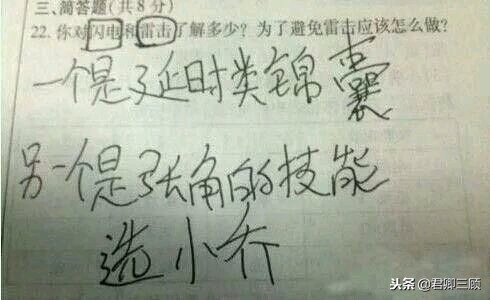 三、简答题(共8分)
22. 你对闪电和雷击了解多少？为了避免雷击应该怎么做？
一个是延时类锦囊
另一个是张角的技能
选小乔
头条 @君卿三顾